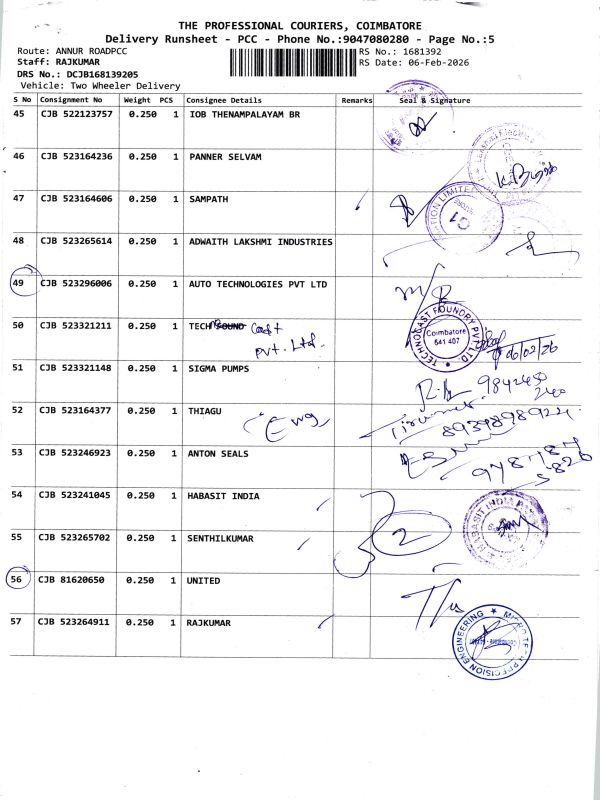 THE PROFESSIONAL COURIERS, COIMBATORE
Delivery Runsheet - PCC - Phone No.:9047080280 - Page No.:5
Route: ANNUR ROADPCC
RS No.: 1681392
Staff: RAJKUMAR
RS Date: 06-Feb-2026
DRS No.: DCJB168139205
Vehicle: Two Wheeler Delivery
S No Consignment No Weight PCS Consignee Details Remarks Seal & Signature
45 CJB 522123757 0.250 1 IOB THENAMPALAYAM BR
46 CJB 523164236 0.250 1 PANNER SELVAM
47 CJB 523164606 0.250 1 SAMPATH
48 CJB 523265614 0.250 1 ADWAITH LAKSHMI INDUSTRIES
49 CJB 523296006 0.250 1 AUTO TECHNOLOGIES PVT LTD
50 CJB 523321211 0.250 1 TECHNOSOUND Cast
Pvt. Ltd.
TECHNOCAST FOUNDRY PVT. LTD.
Coimbatore
641 407
06/02/26
51 CJB 523321148 0.250 1 SIGMA PUMPS
52 CJB 523164377 0.250 1 THIAGU Eng
8939898922
53 CJB 523246923 0.250 1 ANTON SEALS
54 CJB 523241045 0.250 1 HABASIT INDIA
HABASIT INDIA
2
55 CJB 523265702 0.250 1 SENTHILKUMAR
56 CJB 81620650 0.250 1 UNITED
57 CJB 523264911 0.250 1 RAJKUMAR
MICRO TECH PRECISION ENGINEERING